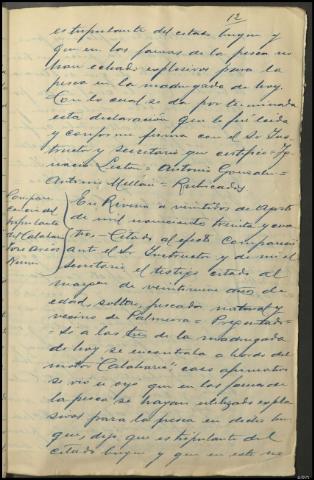 12
estripulante del citado buque y
que en las faenas de la pesca no
han echado explosivos para la
pesca en la madrugada de hoy.
Con lo cual se da por terminada
esta declaración que le fué leida
y conforme firma con el Sr Ins-
tructor y secretario que certifico=Ig-
nacio = Antonio Gonzalez=
Antonio Millán = Rubricados
Compare
cencia del
tripulante
del Calahari
Jose
En Riveira a veintidos de Agosto
de mil novecientos treinta y cua
tro = Citado al efecto comparecio
ante el Sr Instructor y de mi el
secretario el testigo citado al
margen de veintinueve años de
edad soltero, pescador natural y
vecino de Palmeira = Preguntado=
= Si a las tres de la madrugada
de hoy se encontraba a bordo del
motor "Calahari" caso afirmativo
se vió u oyo que en las faenas de
la pesca se hayan utilizado explo
sivos para la pesca en dicho bu
que, dijo que es tripulante del
citado buque y que en este no